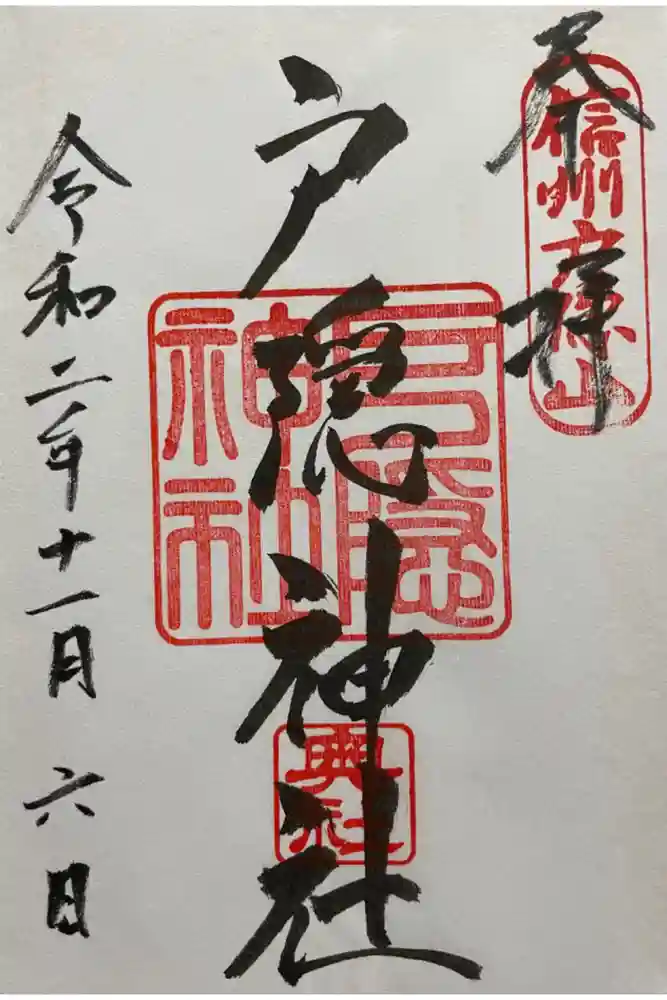 奉拝
信州戸隠山
戸隠神社
戸隠神社
奥社
令和二年十一月六日